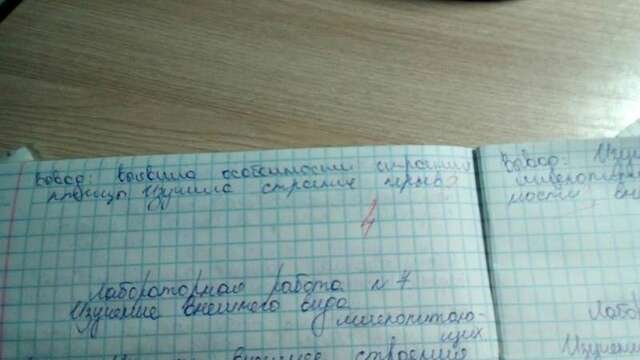 Вывод: выявила особенности строения
птицы, изучила строение пера
4
Лабораторная работа №7
Изучение внешнего вида
млекопитаю-
щих.
внешнее строение
Вывод: Изу
млекопита
ности вн
Лабор
Изучени